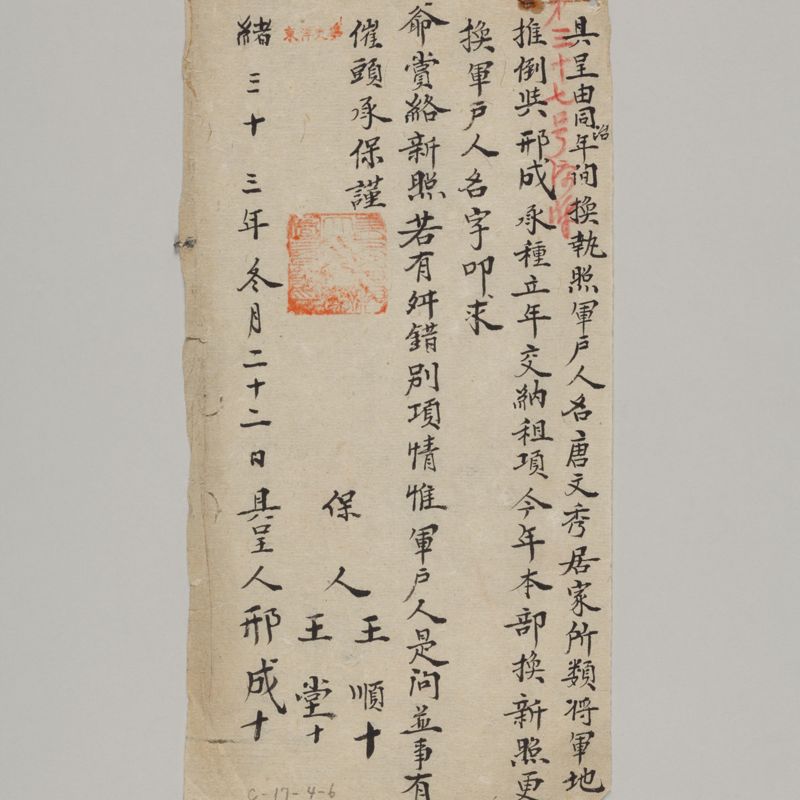 具呈由同治年间換執照軍戶人名唐文秀居家所類将軍地
推倒與邢成承種立年交納租項今年本部換新照更
換軍戶人名字叩求
爺賞給新照若有舛錯別項情惟軍戶人是问並事有
催頭承保謹
保人 王順十
王堂十
緒三十三年冬月二十二日具呈人邢成十
三十七号
C-17-4-6